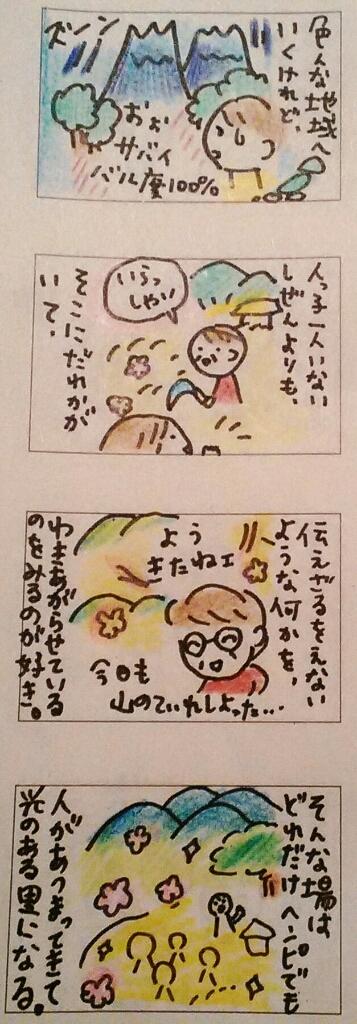 色んな地域へ
いくけれど、
ズーン
おぉ
サバイ
バル度100%
人っ子一人いない
しぜんよりも、
いらっ
しゃい
そこにだれかが
いて、
伝えざるをえない
ような何かを、
よう
きたねェ
今日も
山のていれしよった…
わきあがらせている
のをみるのが好き。
そんな場は
どれだけヘンピでも
人があつまってきて
光のある里になる。